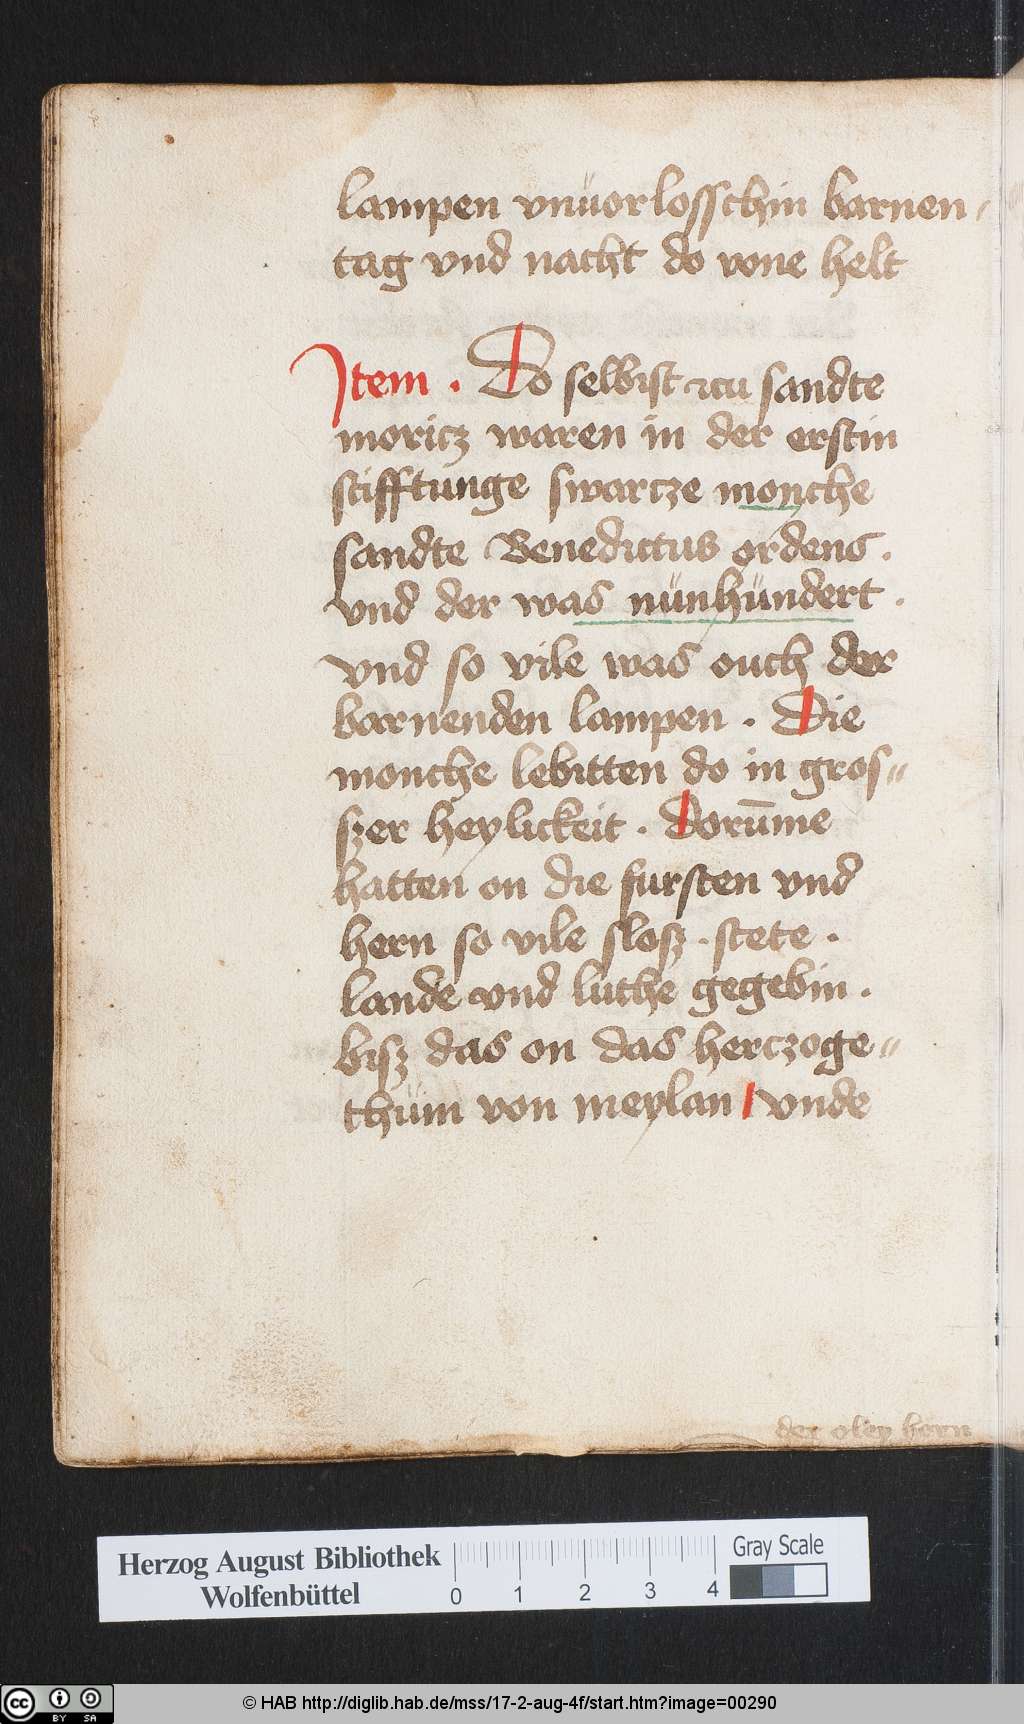 lampen vnuorlosschin barnen⸗
tag vnd nacht do vone helt
Item . Do selbist zcu sandte
moricz waren in der erstin
stifftunge swarcze monche
sandte Benedictus ordens .
vnd der was nünhündert .
vnd so vile was ouch der
barnenden lampen . Die
monche lebitten do in gros⸗
szer heylickeit . dorūme
hatten on die fursten vnd
hern so vile slosz . stete .
lande vnd luthe gegebin .
bisz das on das herczoge⸗
thüm von meylan vnde
der oley hern
Herzog August Bibliothek
Wolfenbüttel
0 1 2 3 4
Gray Scale
cc BY SA
© HAB http://diglib.hab.de/mss/17-2-aug-4f/start.htm?image=00290